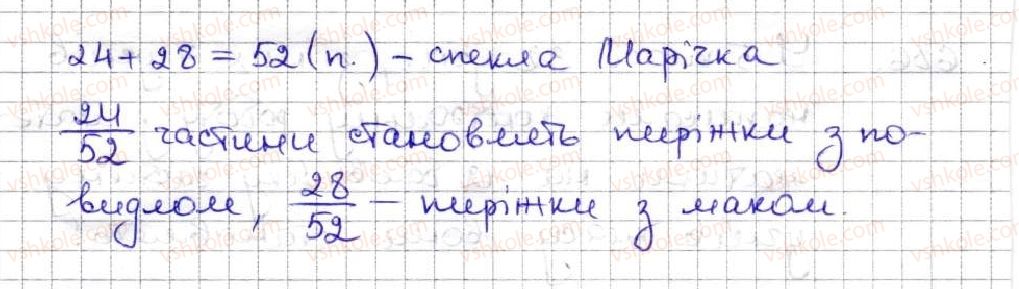 24 + 28 = 52 (п.) – спекла Марічка
24/52 частини становлять пиріжки з по-
видлом, 28/52 – пиріжки з маком.